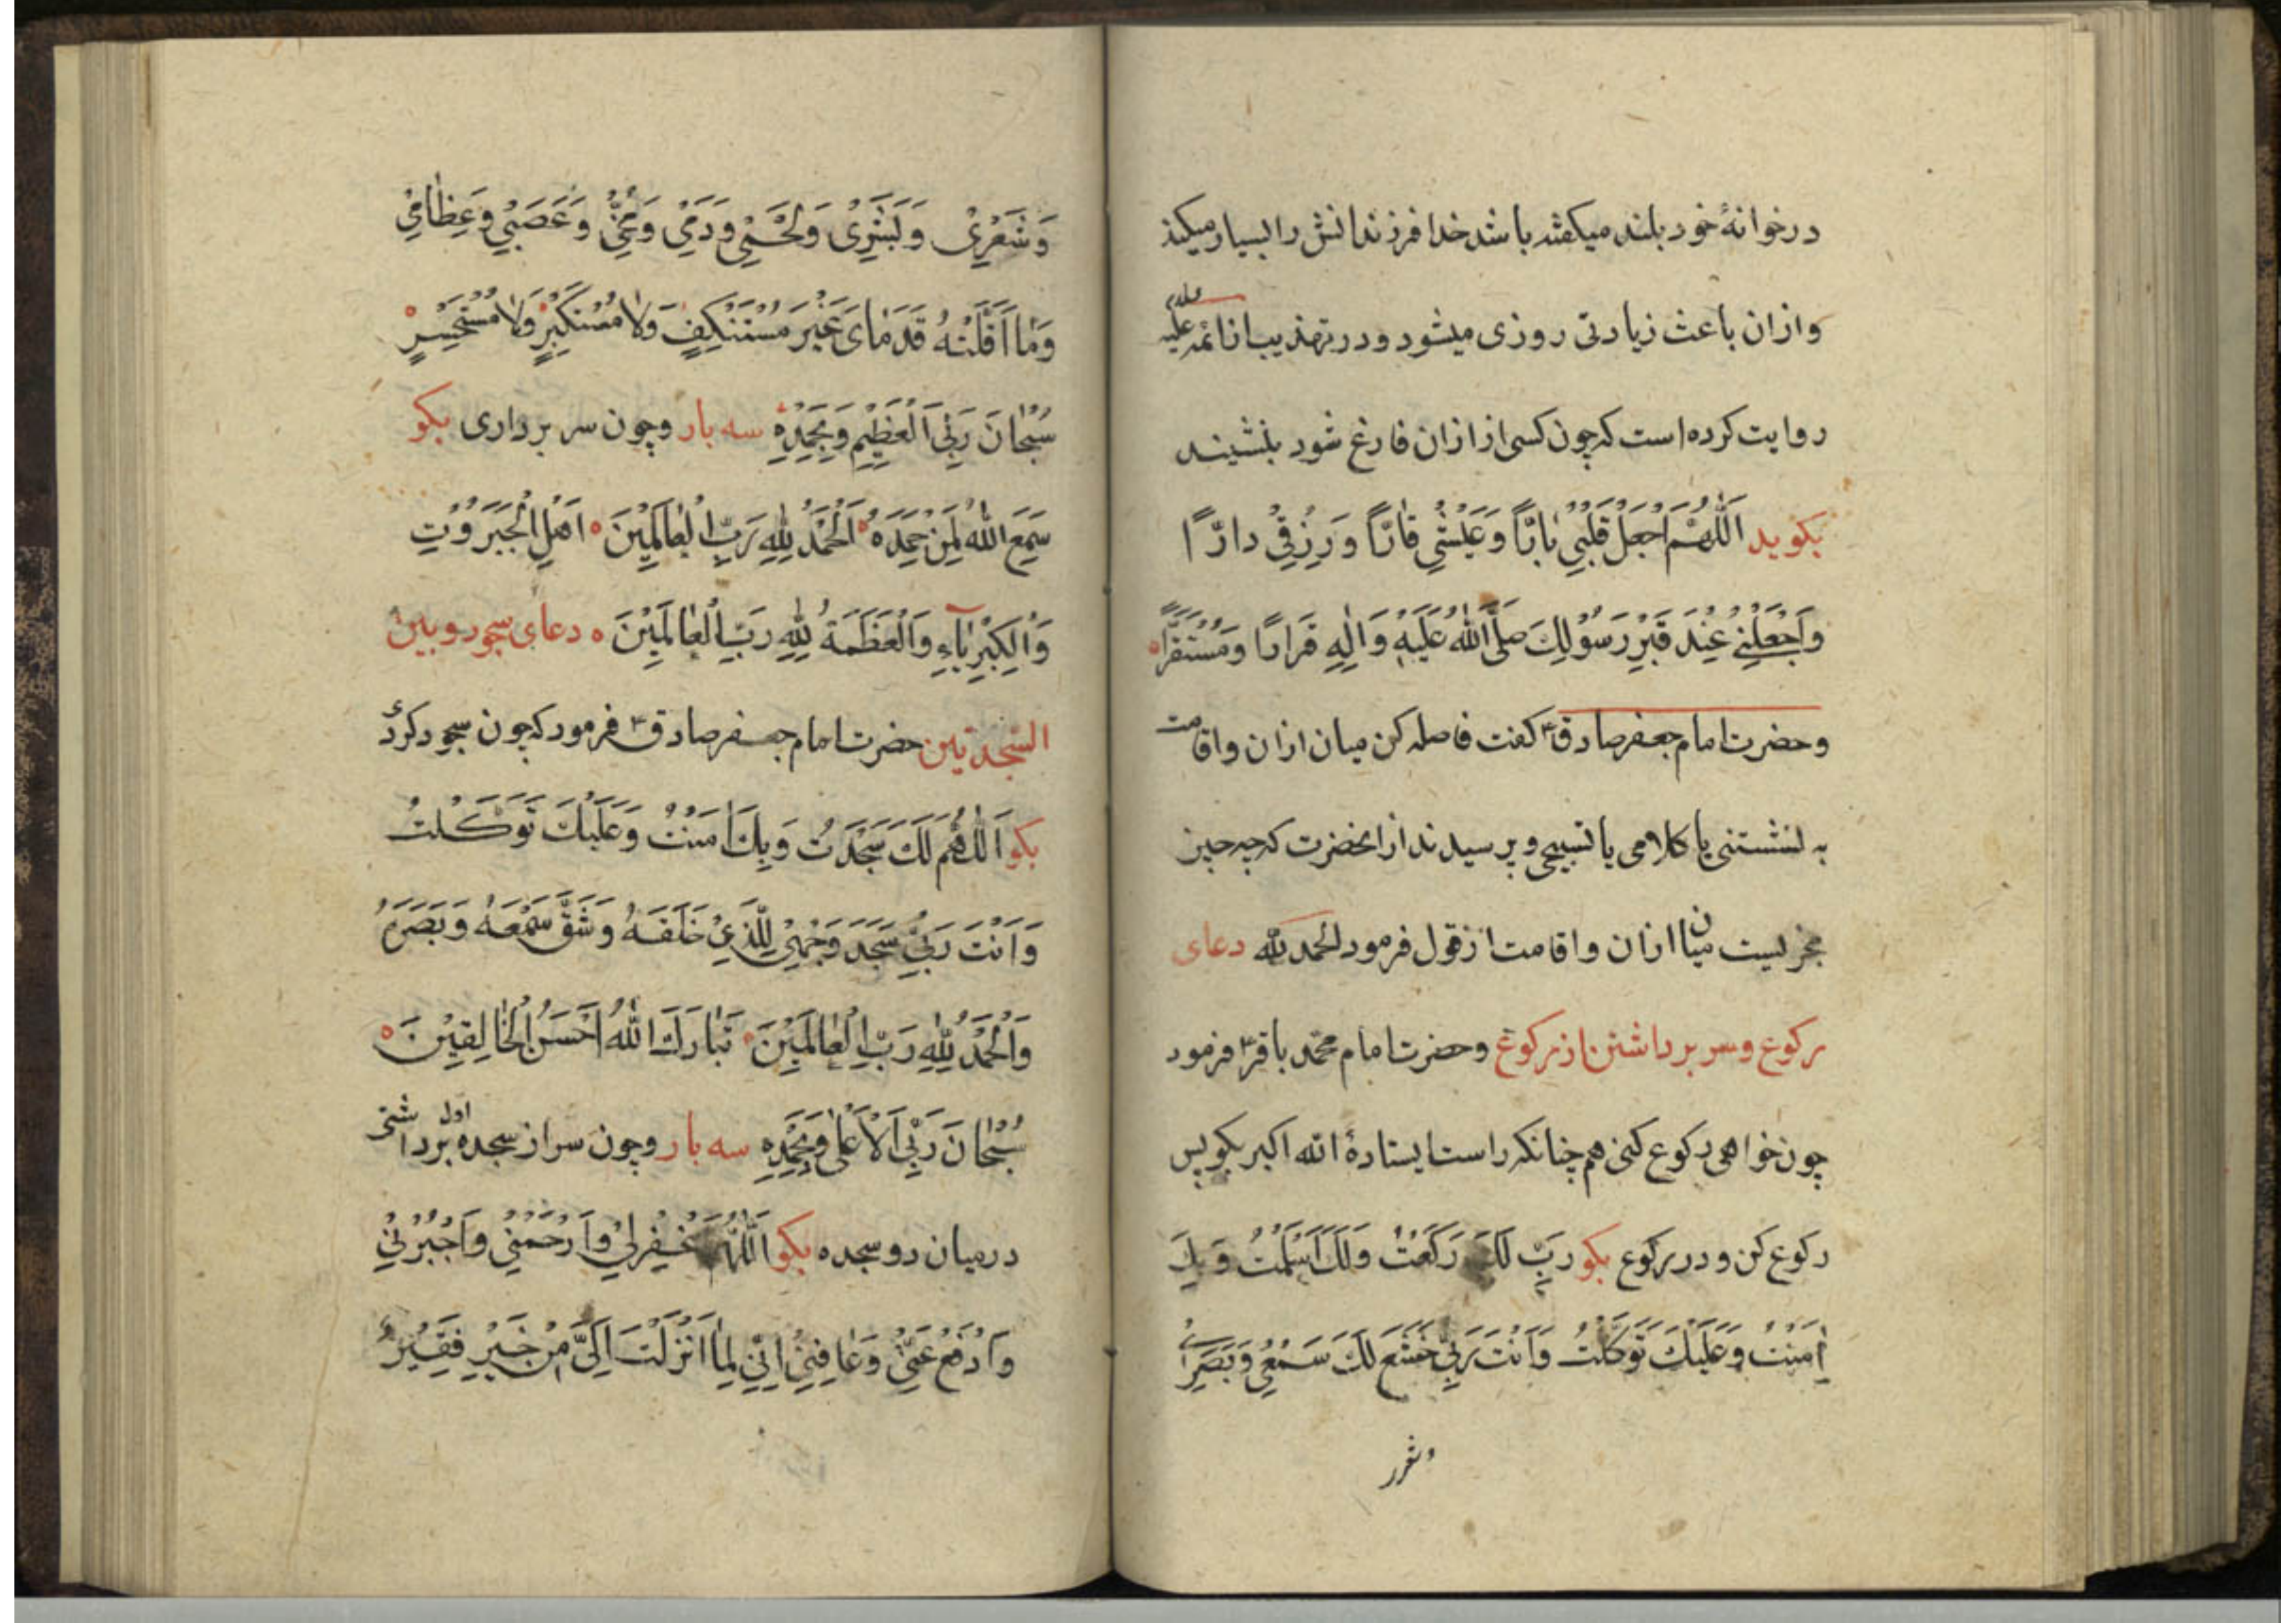 در خوانهٔ خود بلند میکفته باشد خدا فرزندانش را بسیار میکند
و ازان باعث زیادتی روزی میشود و در تهذیب از ائمه علیه
روایت کرده است که چون کسی از اذان فارغ شود بنشیند
بکوید اَللّٰهُمَّ اجْعَلْ قَلْبِیْ بٰارًّا وَعَیْشِیْ قٰارًّا وَرِزْقِیْ دارًّا
وَاجْعَلْنِیْ عِنْدَ قَبْرِ رَسُوْلِكَ صَلَّی اللّٰهُ عَلَیْهِ وَاٰلِهِ قَرَارًا وَمُسْتَقَرًّا
و حضرت امام جعفر صادق ع کفت فاصله کن میان اذان و اقامت
به نشستنی یا کلامی یا تسبیحی و پرسیدند از انحضرت که چه چیز
مجزیست میان اذان و اقامت از قول فرمود الحمد لله دعای
رکوع و سر برداشتن از رکوع و حضرت امام محمّد باقر ع فرمود
چون خواهی رکوع کنی هم چنانکه راست ایستادهٔ الله اکبر بکو پس
رکوع کن و در رکوع بکو رَبِّ لَكَ رَكَعْتُ وَلَكَ اَسْلَمْتُ وَبِكَ
اٰمَنْتُ وَعَلَیْكَ تَوَكَّلْتُ وَاَنْتَ رَبِّیْ خَشَعَ لَكَ سَمْعِیْ وَبَصَرِیْ
وَشَعْرِیْ وَبَشَرِیْ وَلَحْمِیْ وَدَمِیْ وَمُخِّیْ وَعَصَبِیْ وَعِظٰامِیْ
وَمٰا اَقَلَّتْهُ قَدَمٰایَ غَیْرَ مُسْتَنْكِفٍ وَلٰا مُسْتَكْبِرٍ وَلٰا مُسْتَحْسِرٍ
سُبْحٰانَ رَبِّیَ الْعَظِیْمِ وَبِحَمْدِهِ سه بار و چون سر برداری بکو
سَمِعَ اللّٰهُ لِمَنْ حَمِدَهُ اَلْحَمْدُ لِلّٰهِ رَبِّ الْعٰالَمِیْنَ اَهْلِ الْجَبَرُوْتِ
وَالْكِبْرِیٰآءِ وَالْعَظَمَةُ لِلّٰهِ رَبِّ الْعٰالَمِیْنَ دعای سجود و بین
السّجدتین حضرت امام جعفر صادق ع فرمود که چون سجود کردی
بکو اَللّٰهُمَّ لَكَ سَجَدْتُ وَبِكَ اٰمَنْتُ وَعَلَیْكَ تَوَكَّلْتُ
وَاَنْتَ رَبِّیْ سَجَدَ وَجْهِیْ لِلَّذِیْ خَلَقَهُ وَشَقَّ سَمْعَهُ وَبَصَرَهُ
وَالْحَمْدُ لِلّٰهِ رَبِّ الْعٰالَمِیْنَ تَبٰارَكَ اللّٰهُ اَحْسَنُ الْخٰالِقِیْنَ
سُبْحٰانَ رَبِّیَ الْاَعْلٰی وَبِحَمْدِهِ سه بار و چون سر از سجده اول برداشتی
در میان دو سجده بکو اَللّٰهُمَّ غْفِرْلِیْ وَارْحَمْنِیْ وَاجْبُرْنِیْ
وَادْفَعْ عَنِّیْ وَعٰافِنِیْ اِنِّیْ لِمٰا اَنْزَلْتَ اِلَیَّ مِنْ خَیْرٍ فَقِیْرٌ